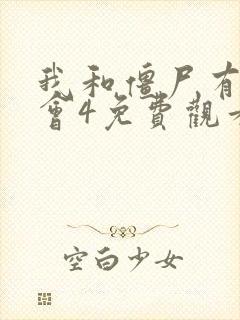 我和僵尸有
會4免費觀
空白少女